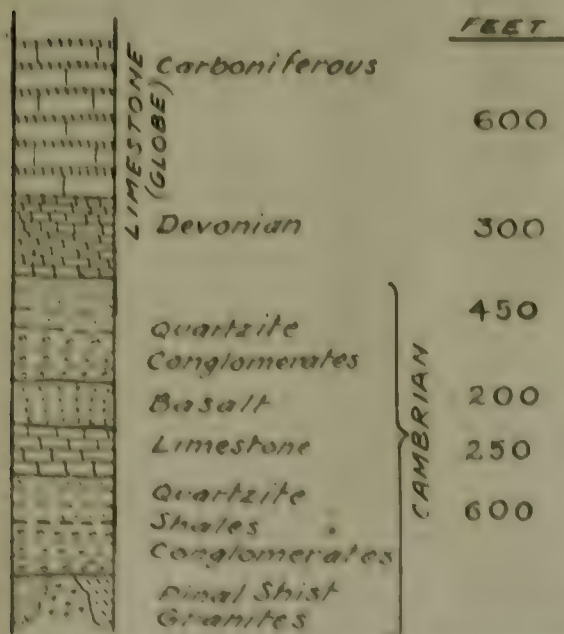 FEET
LIMESTONE
(GLOBE)
Carboniferous
600
Devonian
300
450
Quartzite
Conglomerates
Basalt
200
Limestone
250
Quartzite
600
Shales
Conglomerates
CAMBRIAN
Pinal Shist
Granites